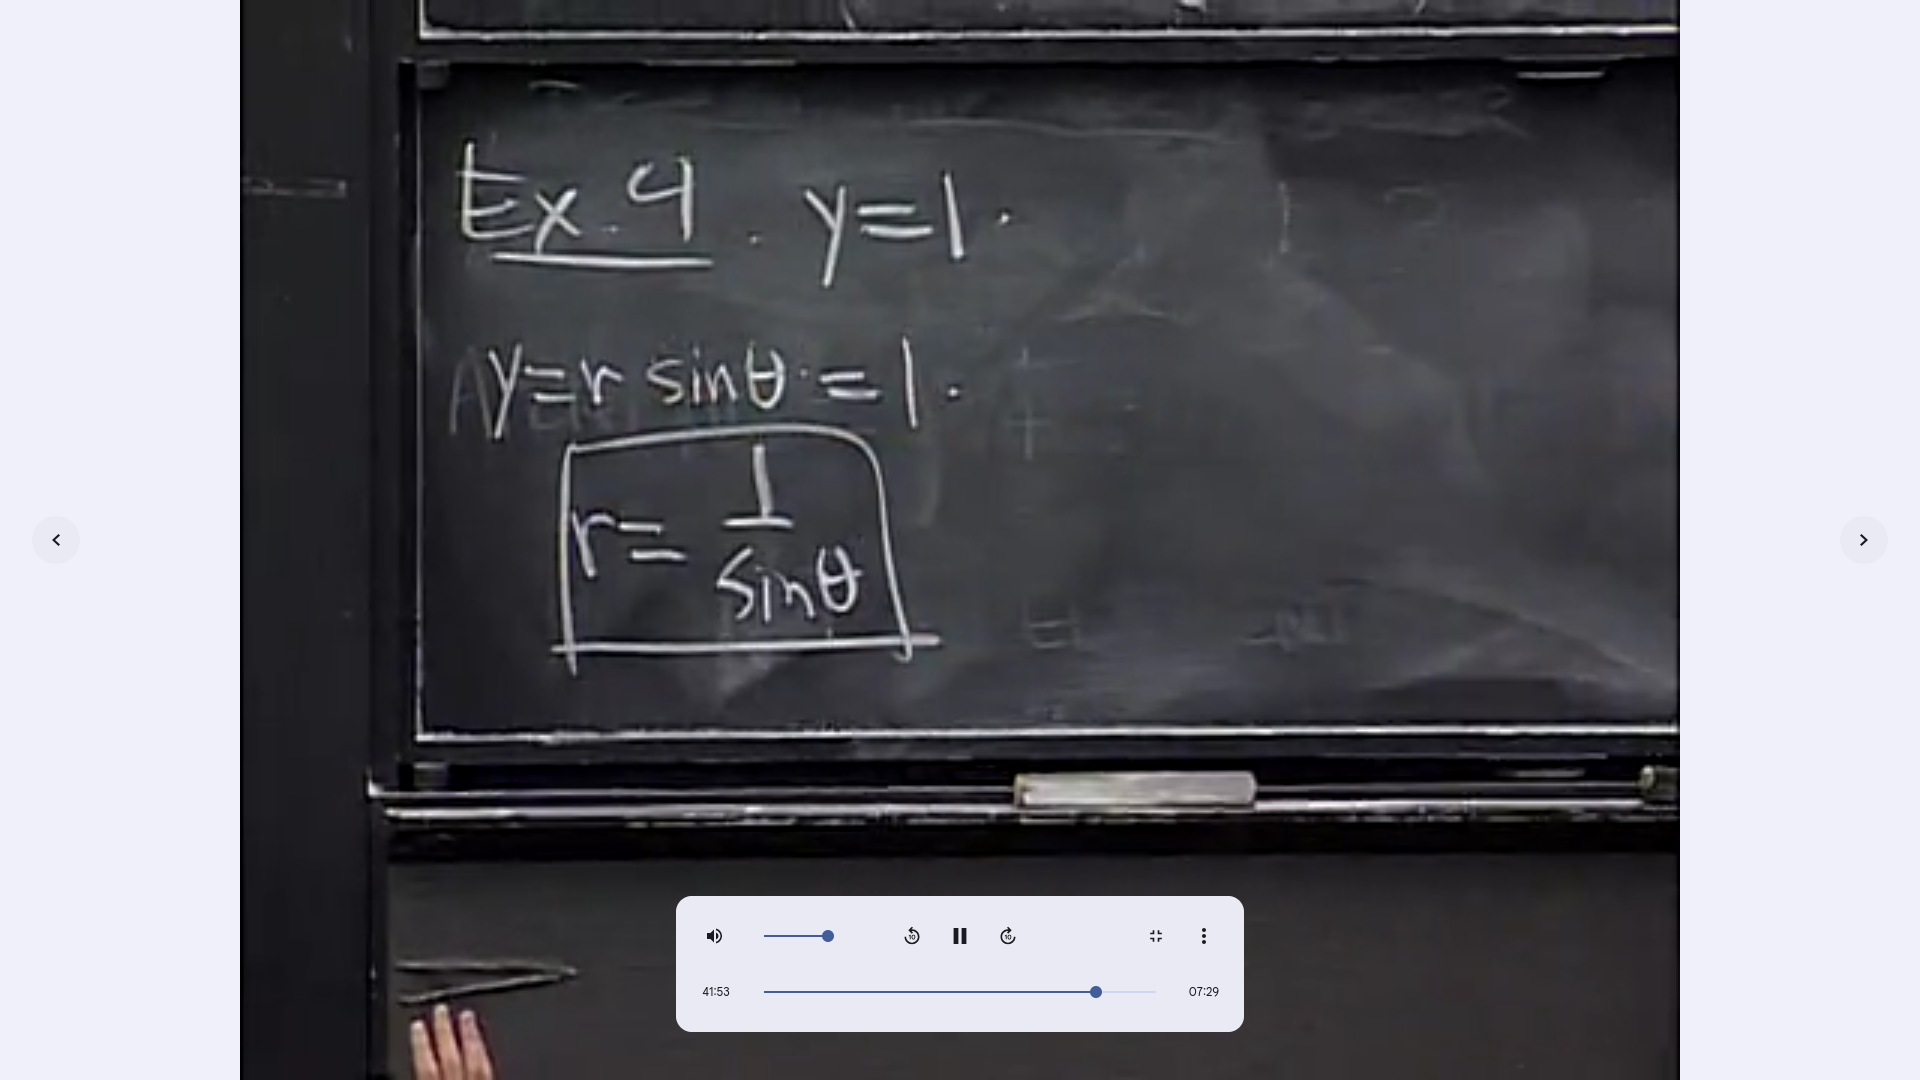 Ex. 4. y=1.
y=r sinθ = 1.
r= 1/sinθ
41:53
07:29